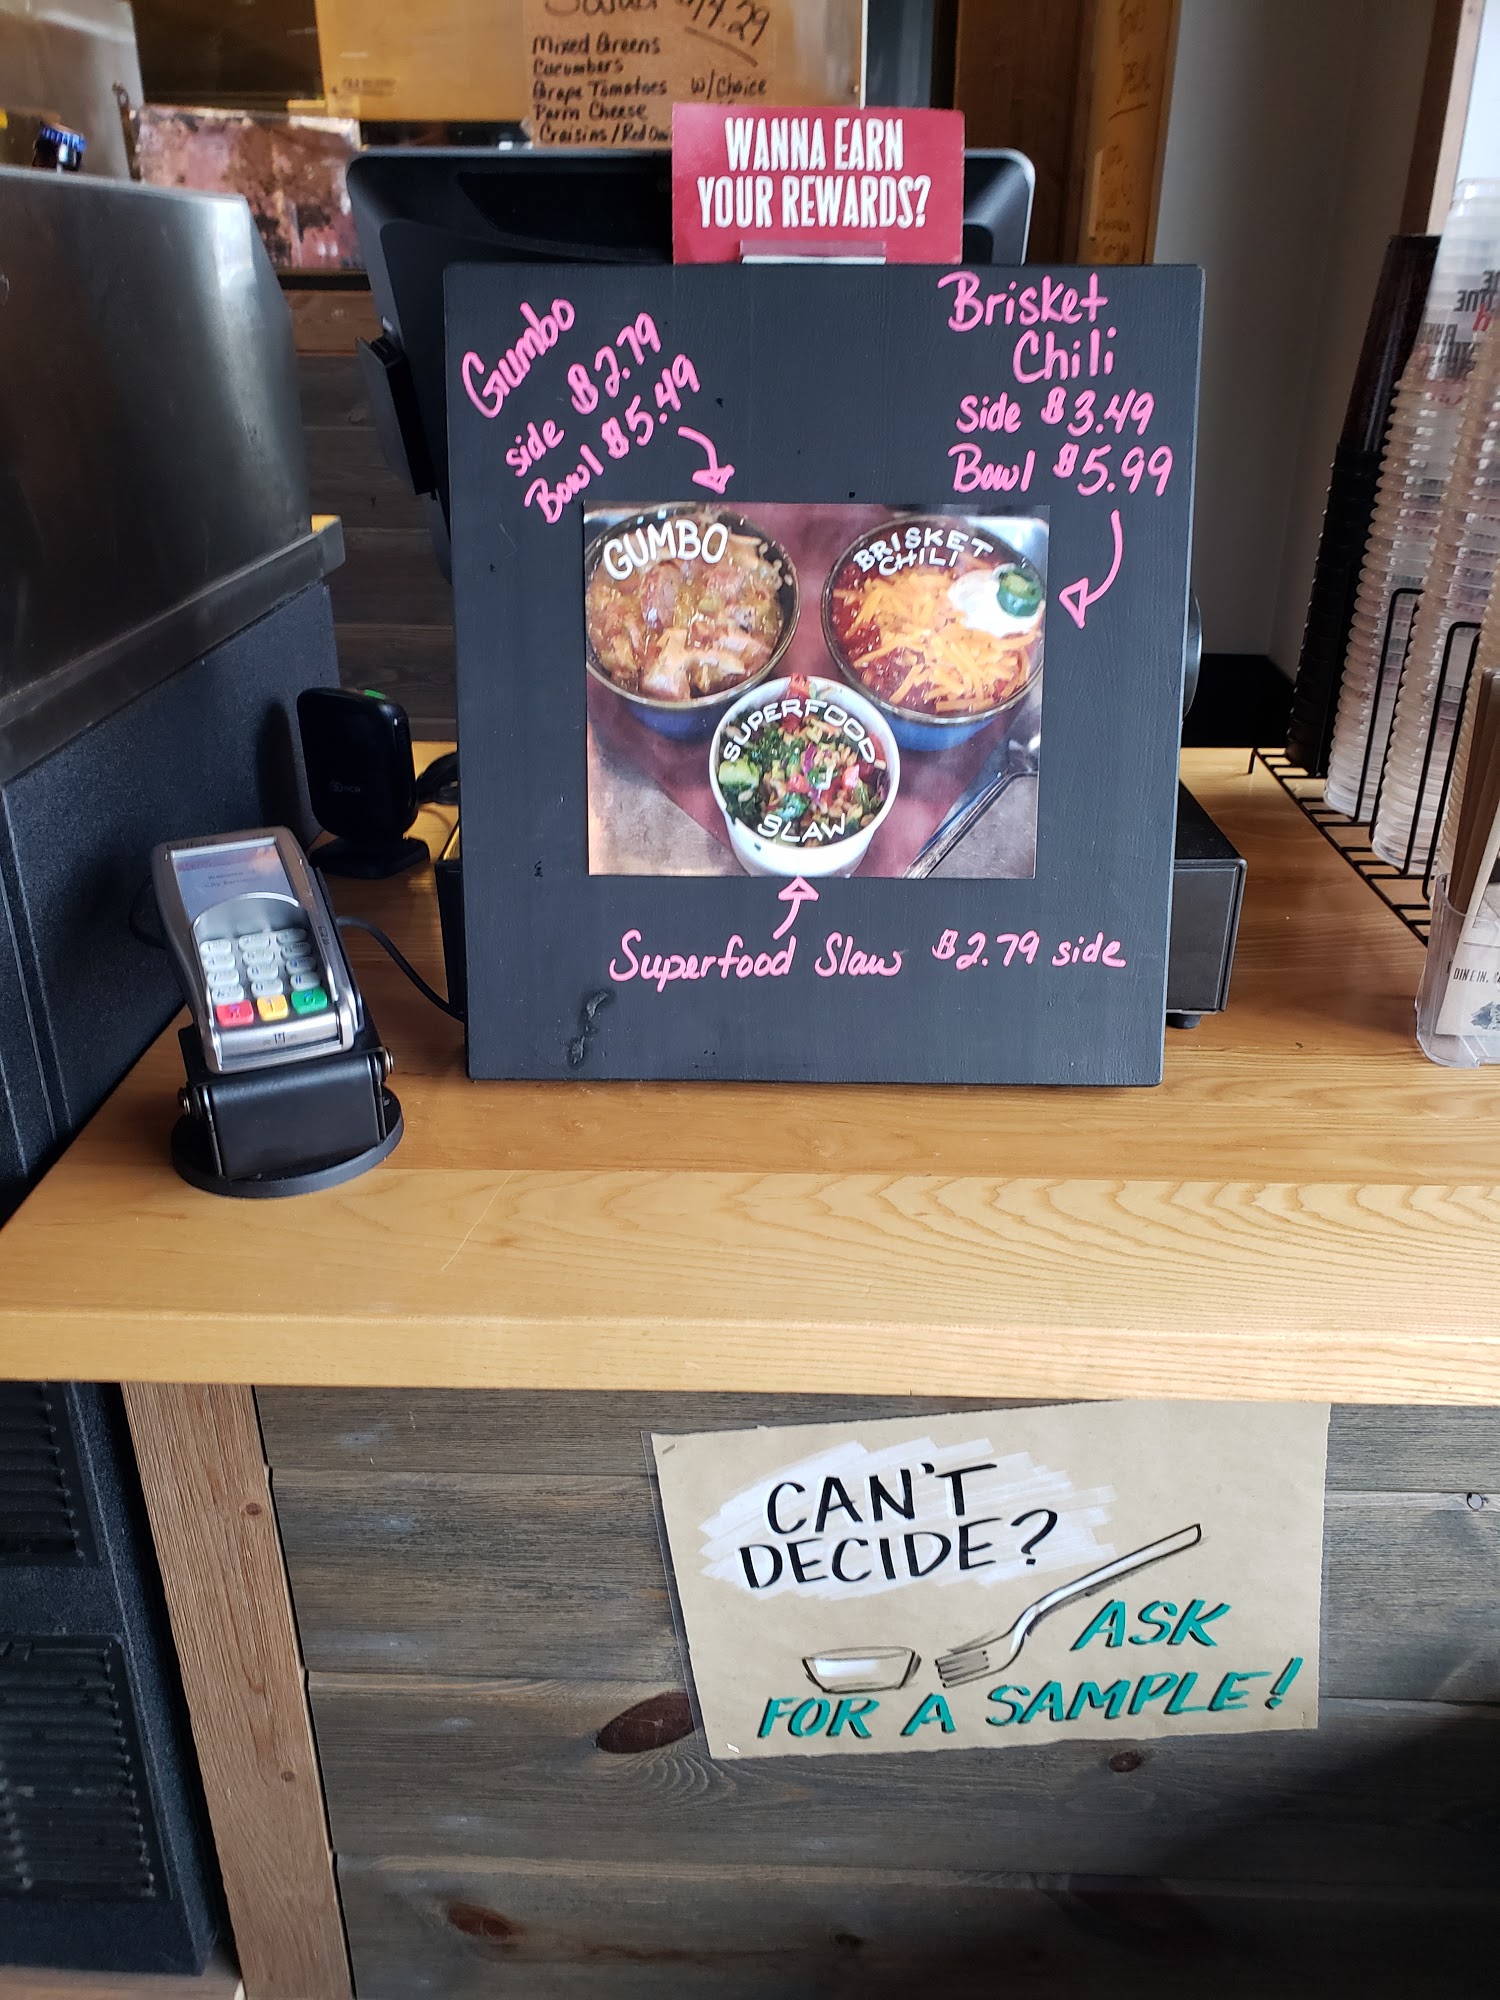 Salad
Mixed Greens
Cucumbers
Grape Tomatoes w/Choice
Parm Cheese
Craisins/Red
WANNA EARN
YOUR REWARDS?
Gumbo
side $2.79
Bowl $5.49
Brisket
Chili
side $3.49
Bowl $5.99
GUMBO
BRISKET
CHILI
SUPERFOOD
SLAW
Superfood Slaw $2.79 side
Welcome
DINE IN,
CAN'T
DECIDE?
ASK
FOR A SAMPLE!